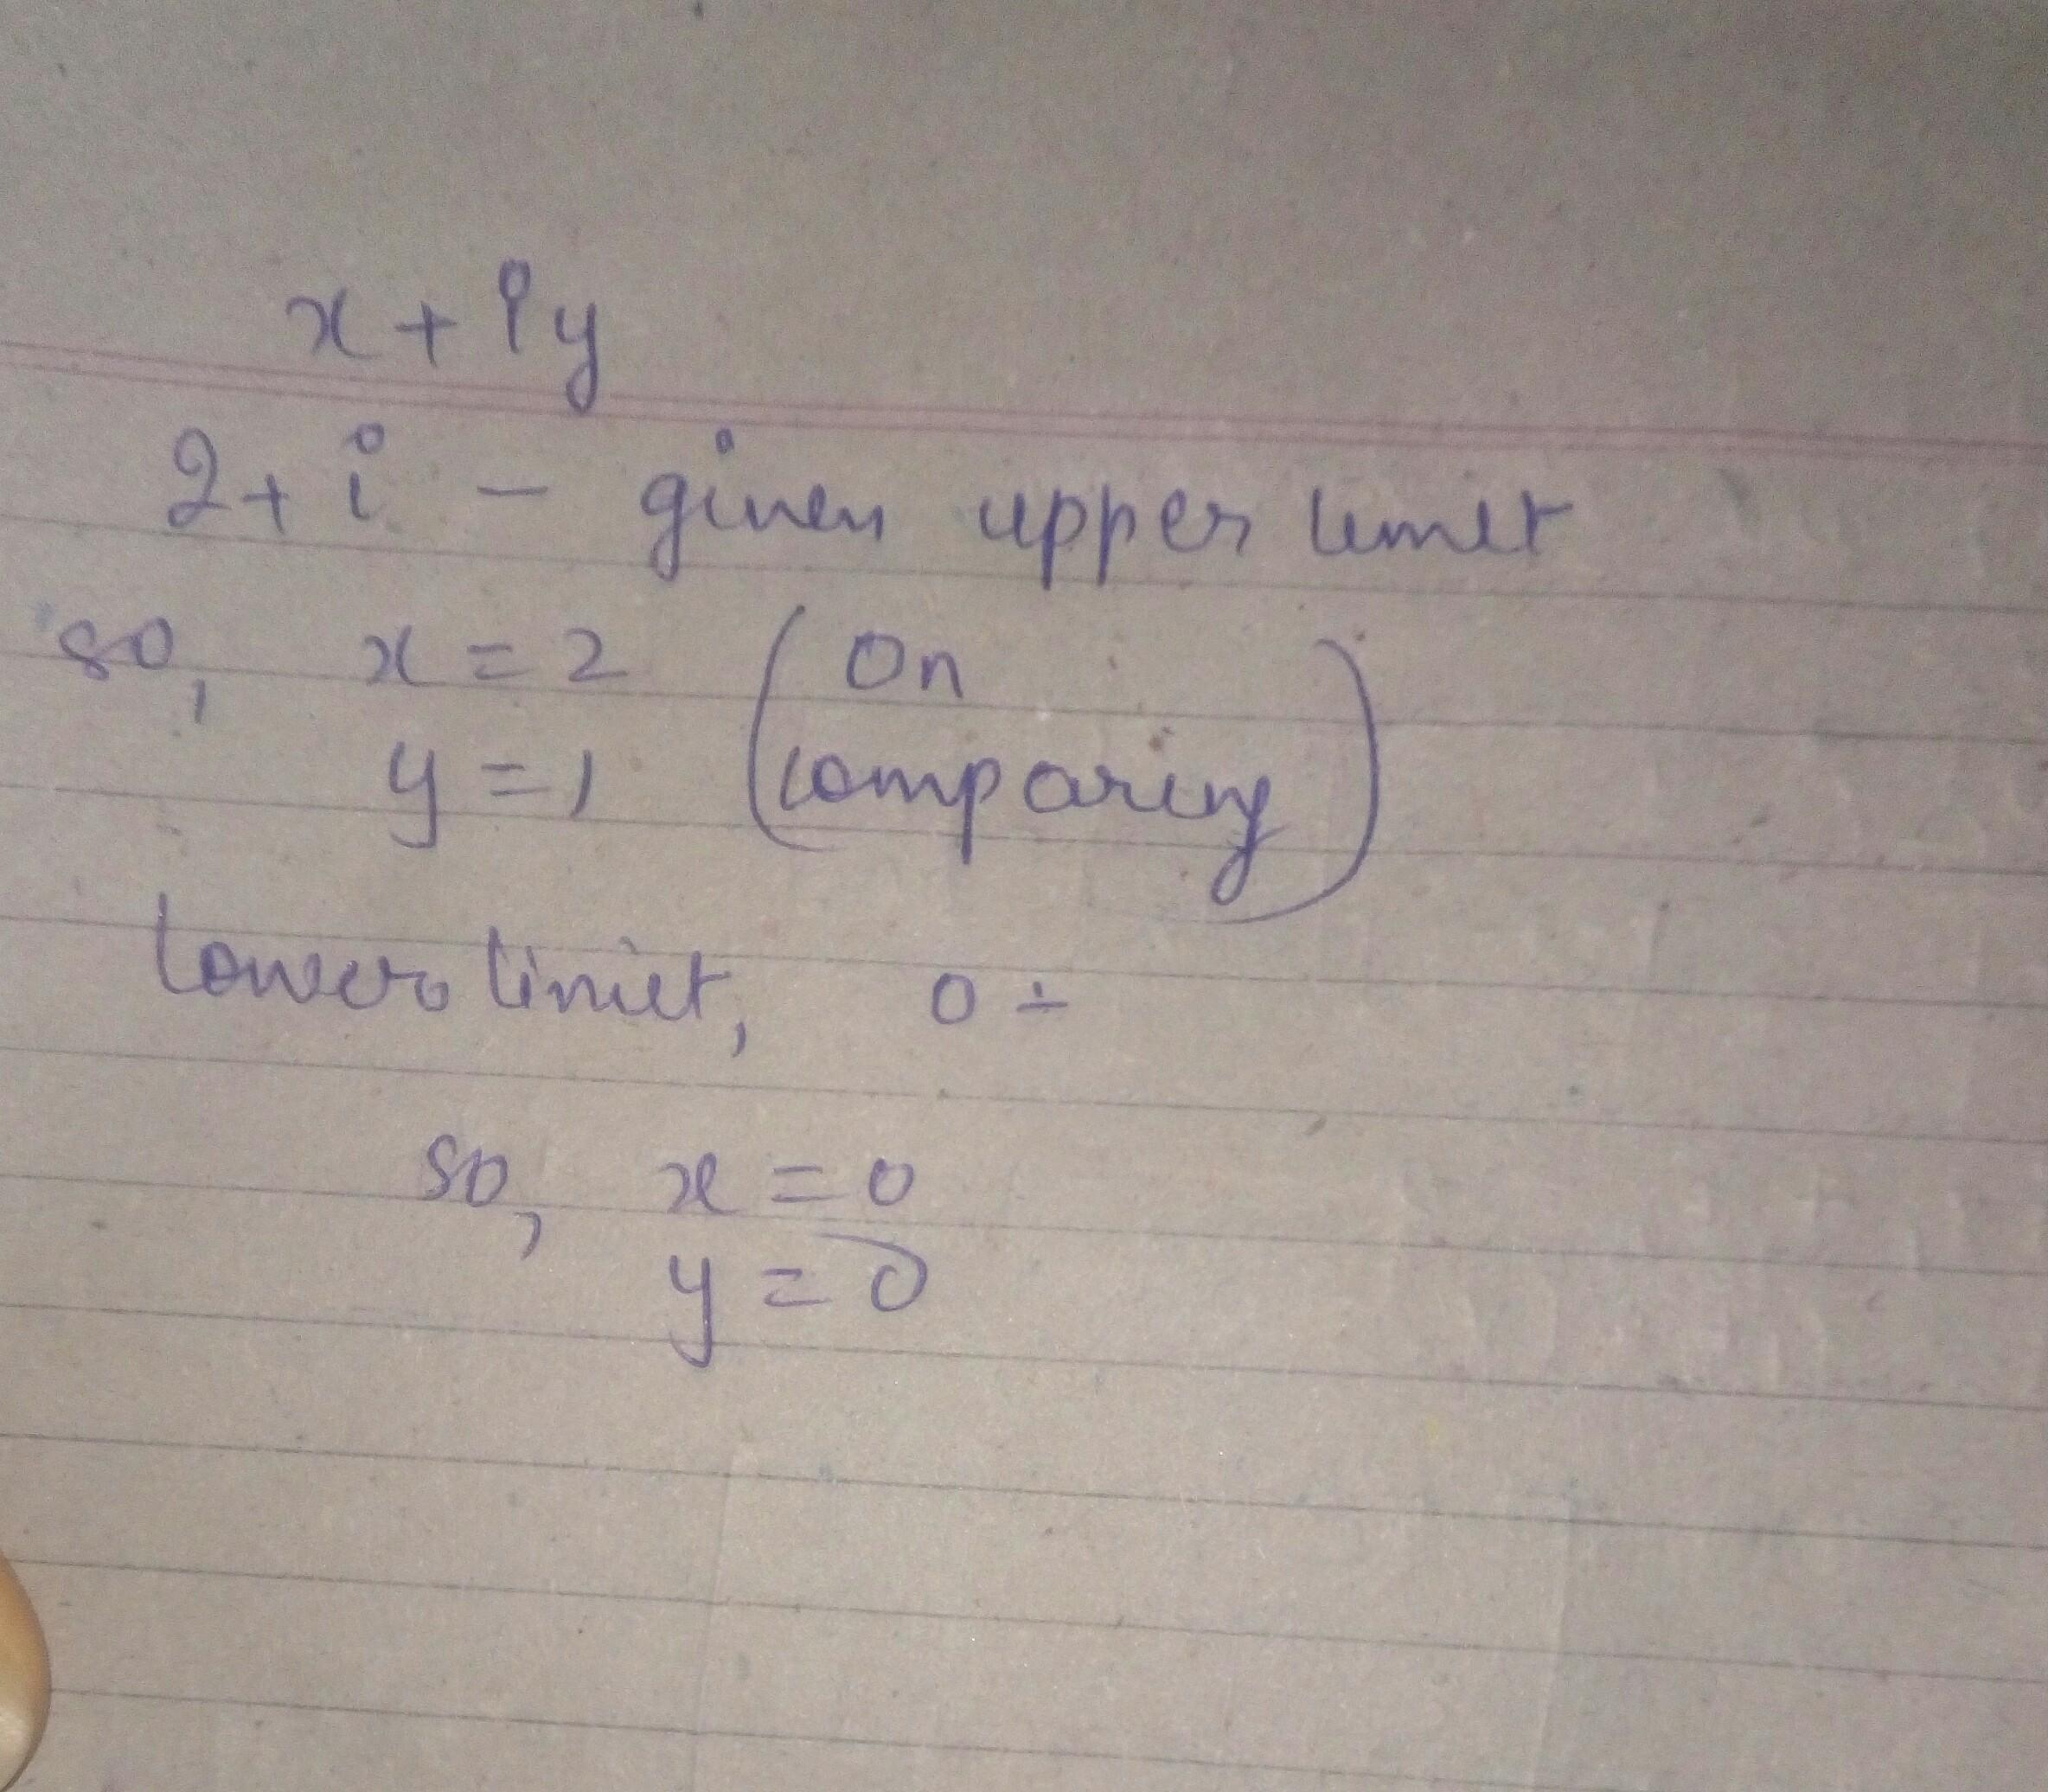 x + iy
2 + i - given upper limit
so, x = 2 (On
y = 1 comparing)
lower limit, 0 ÷
so, x = 0
y = 0